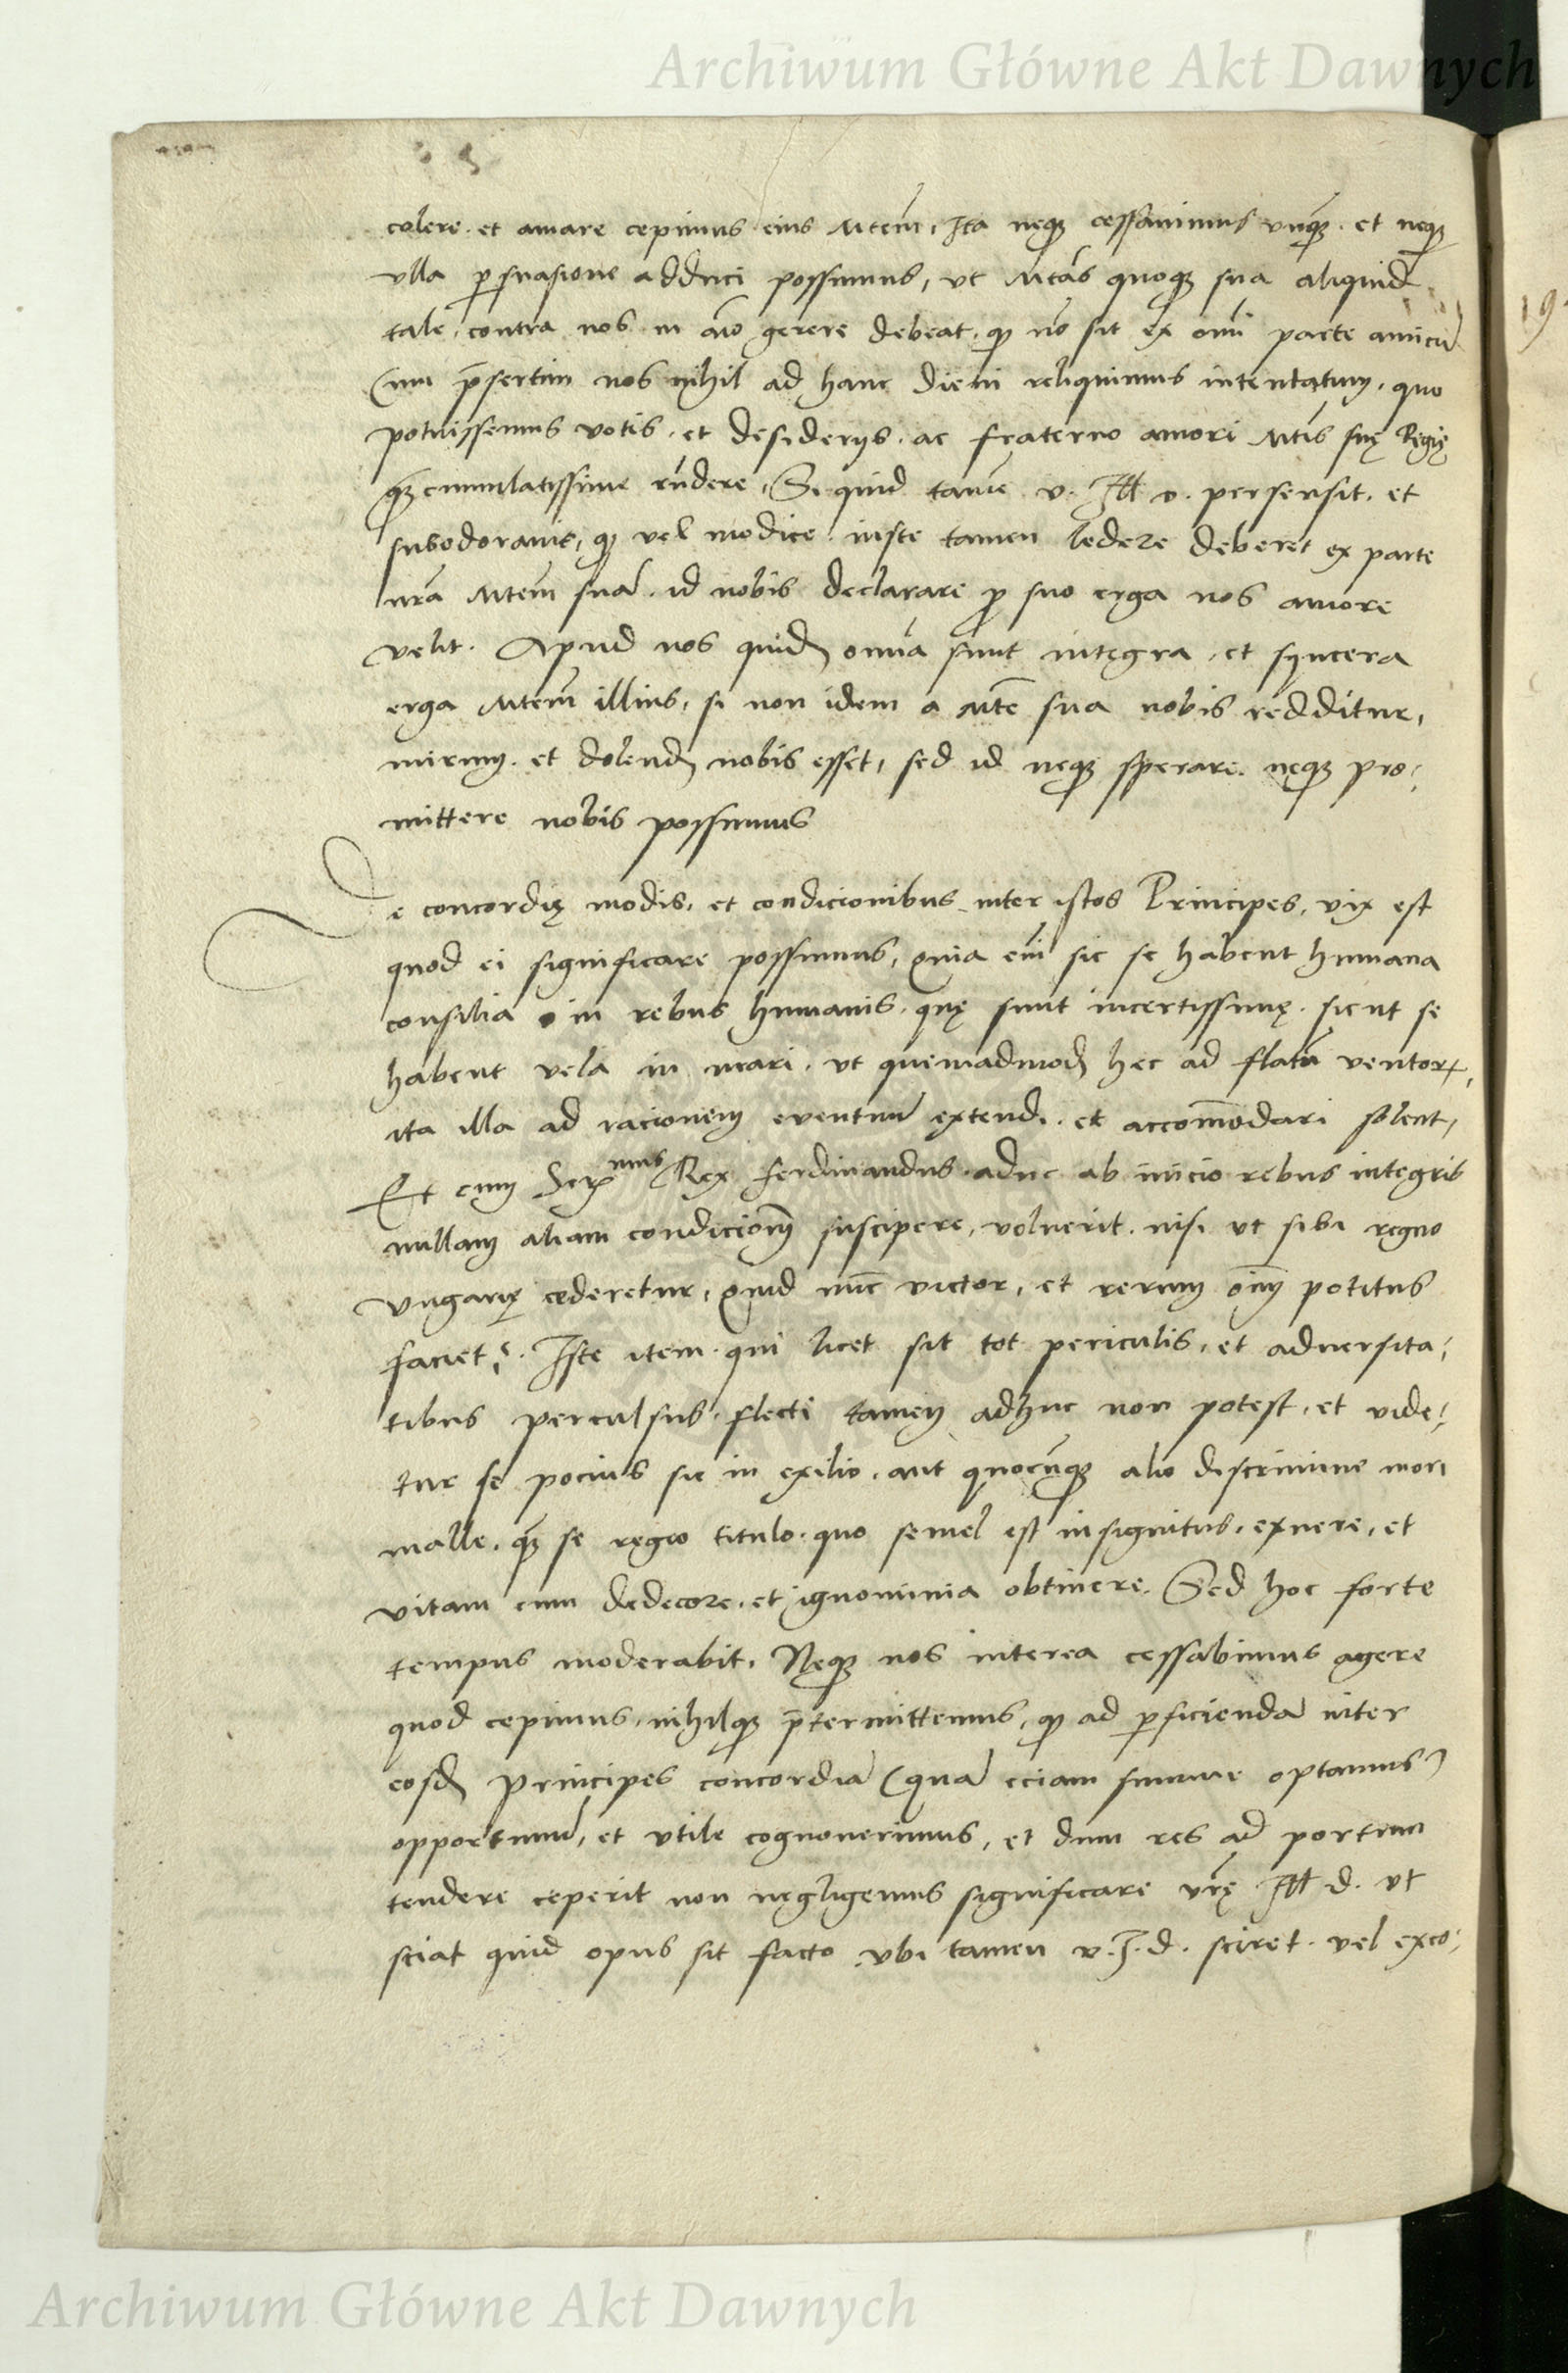 Archiwum Główne Akt Dawnych
colere. et amare cepimus eius Mtem̃, Ita neq̢ cessauimus vnq̃. et neq̢
vlla ꝑsuasione adduci possumus, vt Mtãs quoq̢ sua aliquid
tale. contra nos in aĩo gerere debeat. qđ nõ sit ex om̃i parte amicũ
Cum p̃sertim nos nihil ad hanc diem reliquimus intentatum. quo
potuissemus votis. et desiderijs. ac fraterno amori Mtĩs suę Regię
q̃ cumulatissime rñdere, Si quid tamẽ v. Ill d. persensit. et
subodorauit, qđ vel modice iuste tamen ledere deberet ex parte
nr̃a Mtem̃ suã. id nobis declarare ꝓ suo erga nos amore
velit. Apud nos quidẽ om̃ia sunt integra. et syncera
erga Mtem̃ illius, si non idem a Mtẽ sua nobis redditur,
mirum. et dolendũ nobis esset, sed id neq̢ sperare. neq̢ pro,
mittere nobis possumus
De concordię modis, et condicionibus inter istos Principes, vix est
quod ei significare possumus, quia em̃ sic se habent humana
consilia in rebus humanis. quę sunt incertissimę. sicut se
habent vela in mari. vt quemadmodũ hec ad flatũ ventoꝝ,
ita illa ad racionem euentuũ extendi. et accom̃odari solent,
Et cum Ser nmus Rex Ferdinandus. aduc ab inicio rebus integris
nullam aliam condicionẽ suscipere, voluerit. nisi vt sibi regno
Vngarię cederetur, quid nũc victor, et rerum om̃ĩm potitus
faciet?. Iste item. qui licet sit tot periculis, et aduersita,
tibus perculsus. flecti tamen adhuc non potest, et vide,
tur se pocius sic in exilio. aut quocũq̢ alio discrimine mori
malle. q̃ se regio titulo. quo semel est insignitus. exuere, et
vitam cum dedecore. et ignominia obtinere. Sed hoc forte
tempus moderabit. Neq̢ nos interea cessabimus agere
quod cepimus, nihilq̢ p̃termittemus, qđ ad ꝑficiendã inter
eosdẽ Principes concordiã (quã eciam summe optamus)
opportunũ, et vtile cognouerimus, et dum res ad portum
tendere ceperit non negligemus significare vr̃ę Ill d. vt
sciat quid opus sit facto vbi tamen v. I. d. sciret. vel exco,
19
Archiwum Główne Akt Dawnych